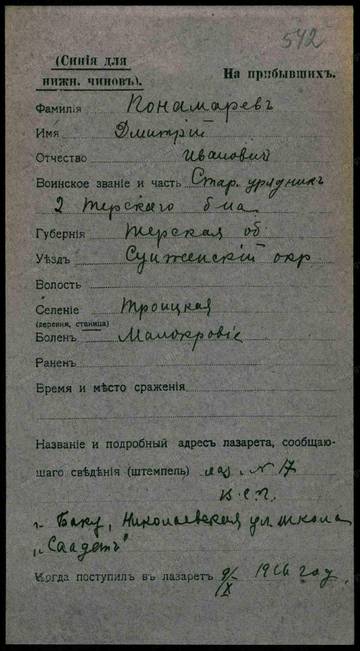 542
(Синія для
нижн. чиновъ). На прибывшихъ.
Фамилія Кономаревъ
Имя Дмитрій
Отчество Ивановичъ
Воинское званіе и часть Стар. урядникъ
2 Терскаго б-на
Губернія Терская об.
Уѣздъ Сунженскій окр
Волость
Селеніе Троицкая
(деревня, станица)
Боленъ Малокровіе
Раненъ
Время и мѣсто сраженія
Названіе и подробный адресъ лазарета, сообщаю-
щаго свѣдѣнія (штемпель) лаз. N 17
в.с.г.
г. Баку, Николаевская ул. школа
„Саадетъ"
Когда поступилъ въ лазаретъ 9/IX 1916 год.